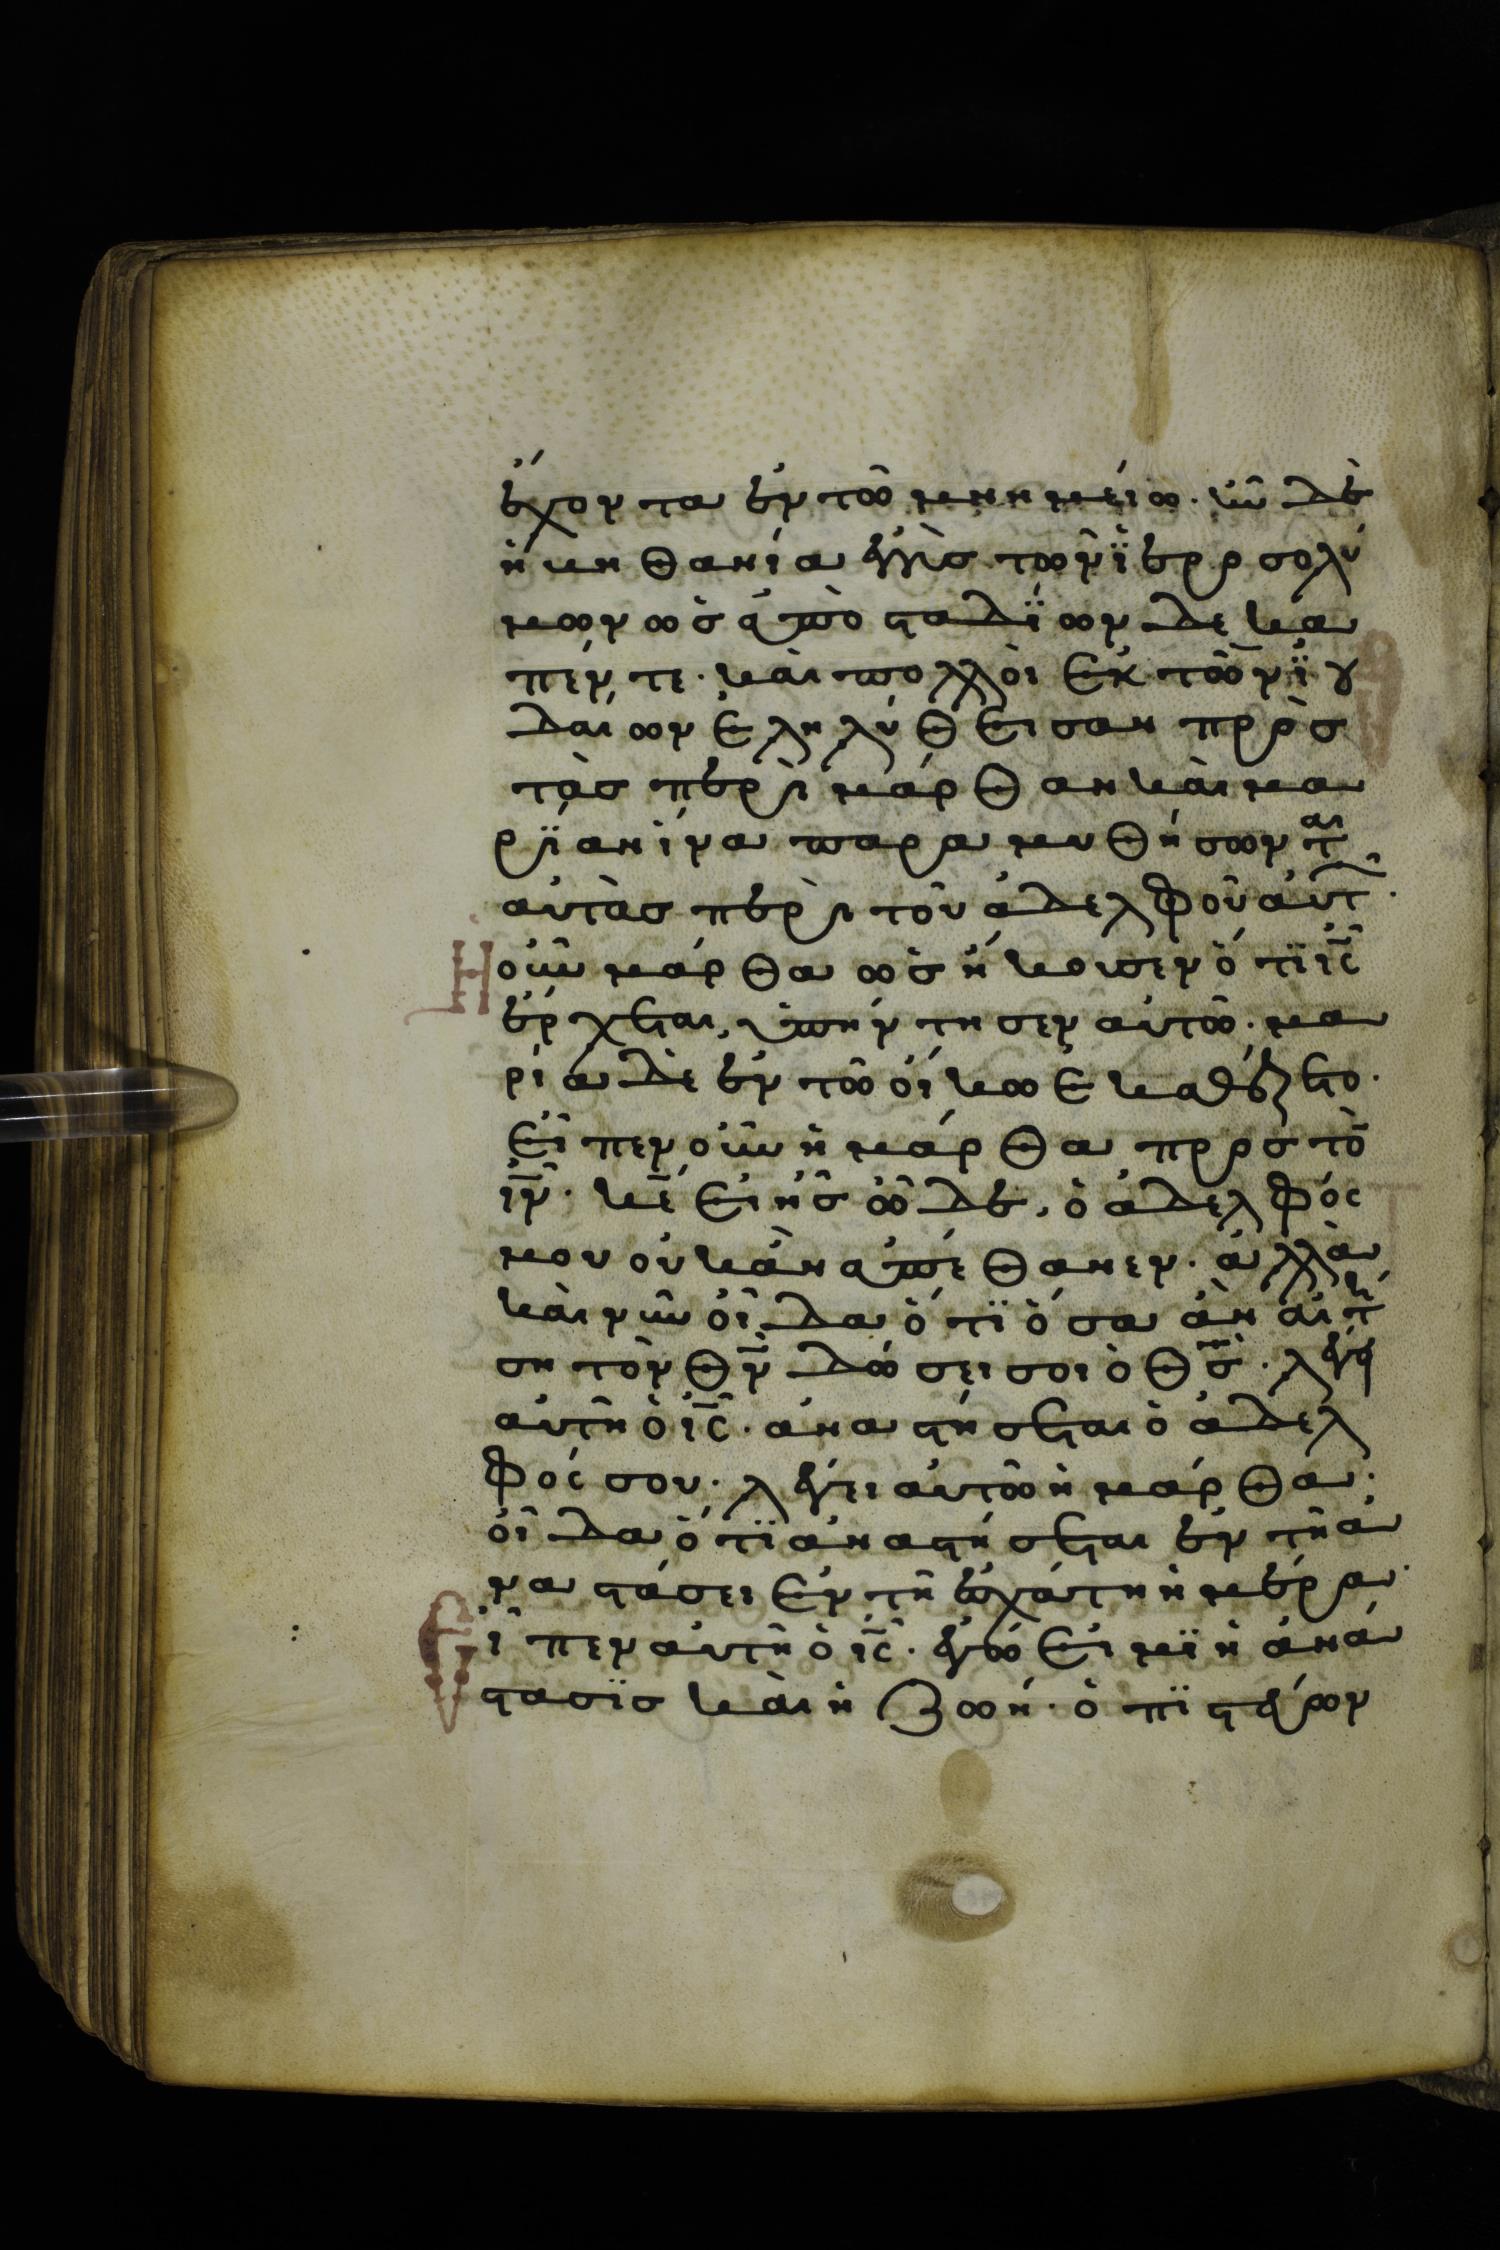 ἔχοντα ἐν τῶ μνημείω· ἦν δὲ
ἡ βηθανία ἐγγὺς τῶν ϊεροσολύ
μων ὡς ἀπὸ σταδΐων δεκα
πέντε· καὶ πολλοὶ ἐκ τῶν ϊου
δαίων ἐληλύθεισαν πρὸς
τὰς περὶ μάρθαν καὶ μα
ρΐαν ἵνα παραμυθήσωνται
αὐτὰς περὶ τοῦ ἀδελφοῦ αὐτ̑·
Ἡ οὖν μάρθα ὡς ἤκουσεν ὅτϊ ις̅
ἔρχεται, ὑπήντησεν αὐτῶ· μα
ρία δὲ ἐν τῶ οἴκω ἐκαθέζετο·
εἶπεν οὖν ἡ μάρθα προς τὸ̅
ιν̅· κε̅ εἰ ἦς ὧδε, ὁ ἀδελφός
μου οὐκ ἂν ἀπέθανεν· ἀλλὰ
καὶ νῦν οἶδα ὅτϊ ὅσα ἂν αἰτή
ση τὸν θν̅ δώσει σοι ὁ θς̅· λέγει
αὐτῆ ὁ ις̅· ἀναστήσεται ὁ ἀδελ
φός σου· λέγει αὐτῶ ἡ μάρθα·
οἶδα ὅτϊ ἀναστήσεται ἐν τῆ ἀ
ναστάσει ἐν τῆ ἐσχάτη ἡμέρα·
Εἶπεν αὐτῆ ὁ ις̅· ἐγώ εἰμϊ ἡ ἀνά
στασϊς καὶ ἡ ζωή· ὁ πϊστεύων